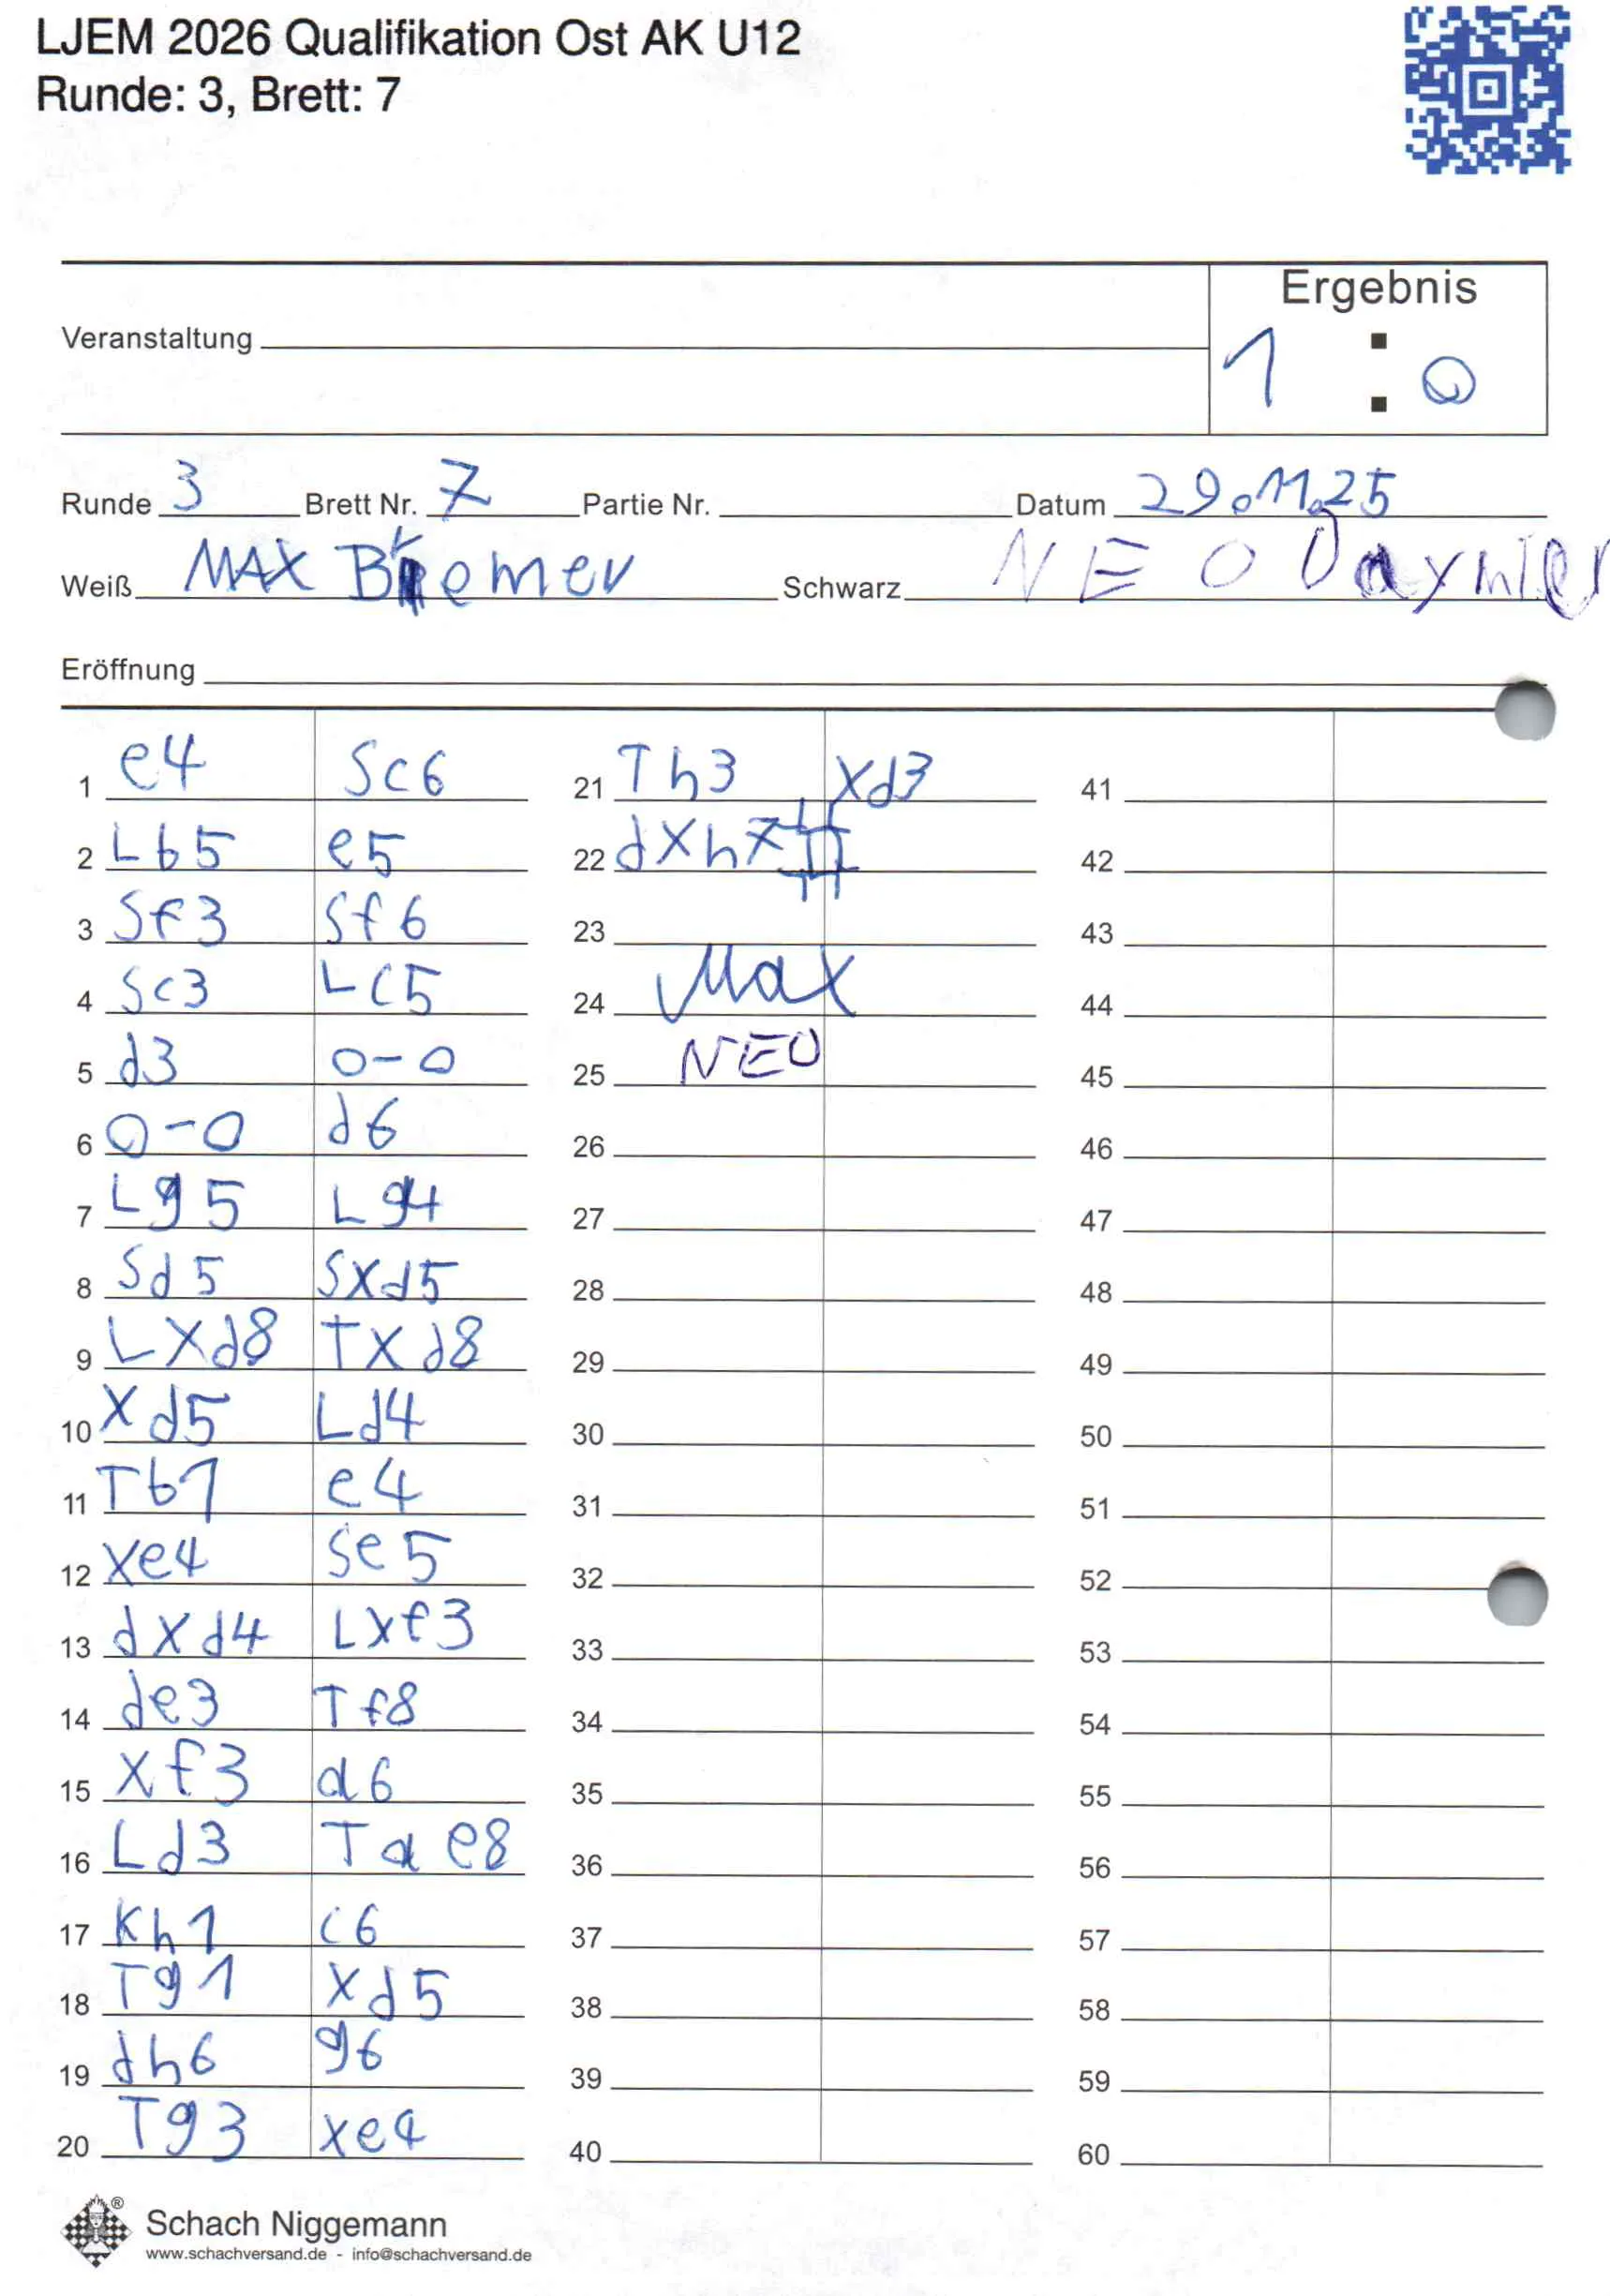 LJEM 2026 Qualifikation Ost AK U12
Runde: 3, Brett: 7
Ergebnis
Veranstaltung
1 : 0
Runde 3 Brett Nr. 7 Partie Nr. Datum 29.11.25
Weiß MAX Bremer Schwarz NEO
Eröffnung
1 e4 Sc6
2 Lb5 e5
3 Sf3 Sf6
4 Sc3 Lc5
5 d3 0-0
6 0-0 d6
7 Lg5 Lg4
8 Sd5 SXd5
9 LXd8 TXd8
10 Xd5 Ld4
11 Tb1 e4
12 Xe4 Se5
13 dXd4 LXf3
14 de3 Tf8
15 Xf3 a6
16 Ld3 Tae8
17 Kh1 c6
18 Tg1 Xd5
19 dh6 g6
20 Tg3 xe4
21 Th3 Xd3
22 dXh7#
23
24 Max
25 NEO
26
27
28
29
30
31
32
33
34
35
36
37
38
39
40
41
42
43
44
45
46
47
48
49
50
51
52
53
54
55
56
57
58
59
60
Schach Niggemann
www.schachversand.de - info@schachversand.de